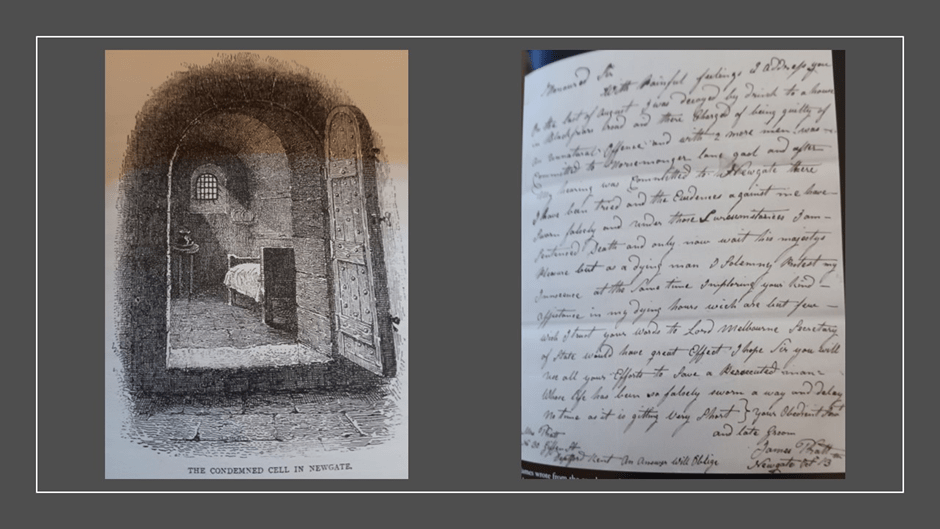 THE CONDEMNED CELL IN NEWGATE.
Honoured Sir
With Painful feelings I address you
On the last of August I was decoyed by drink to a house
in Blackfriars Road and there Charged of being guilty of
an unnatural Offence and with 2 more men was
Committed to Horsemonger lane gaol and after
My hearing was Committed to Newgate there
I have been tried and the Evidences against me have
Sworn falsely and under those Circumstances I am
Sentenced Death and only now wait his majestys
Pleasure but as a dying man I Solemnly Protest my
Innocence at the Same time Imploring your kind
assistance in my dying hours wich are but few
wich I trust your words to Lord Melbourne Secretary
of State would have great Effect I hope Sir you will
use all your Efforts to Save a Persecuted man
Whose life has been so falsely sworn a way and delay
No time as it is gitting Very Short your Obedient
and late Groom
James Pratt
Newgate
Pratt
Effingham St
Deptford Kent An Answer Will Oblige